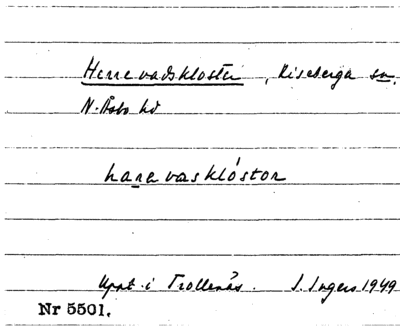 Herrevadskloster, Riseberga sn.
N. Åsbo hd
haravasklóstor
Uppt. i Trollenäs. I. Ingers 1949
Nr 5501.